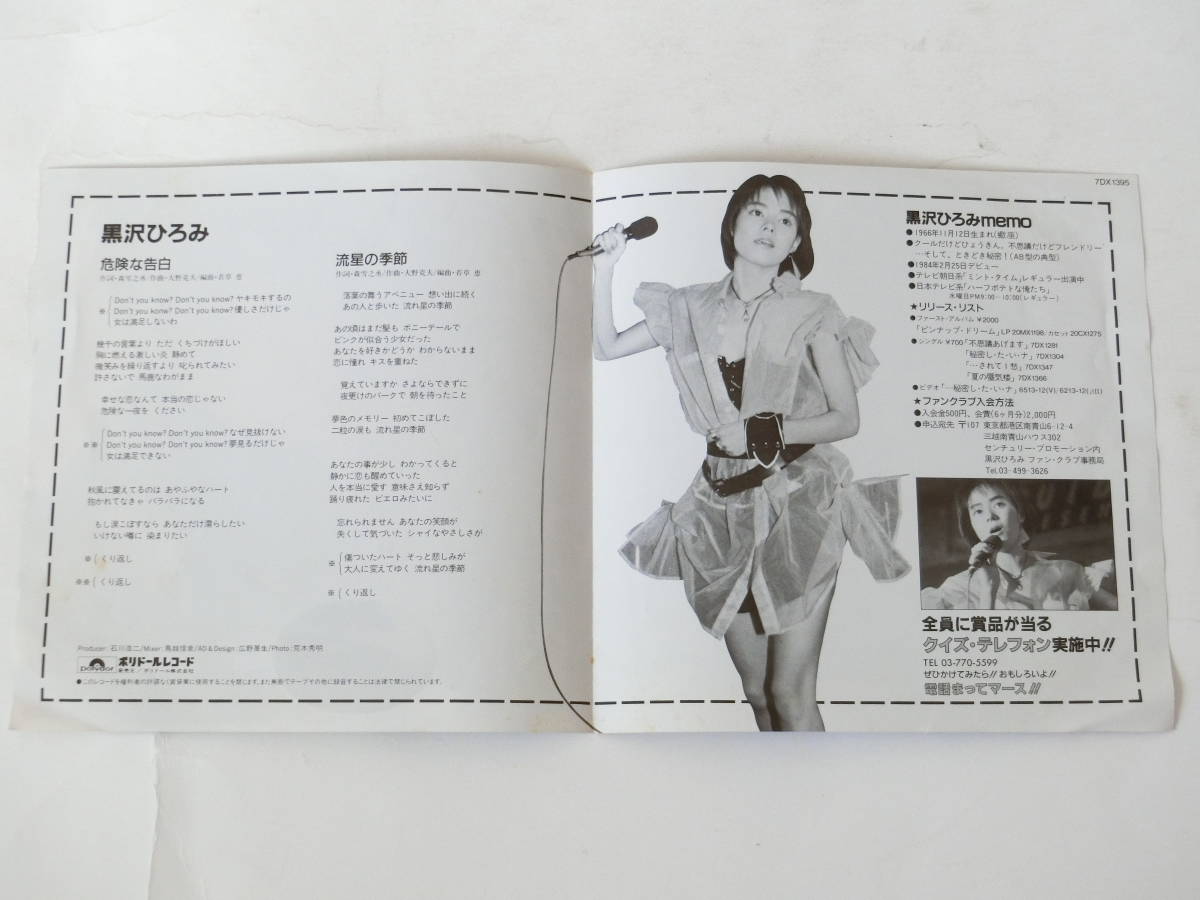 黒沢ひろみ
危険な告白
作詞・森雪之丞/作曲・大野克夫/編曲・若草 恵
Don't you know? Don't you know? ヤキモキするの
※ Don't you konw? Don't you know? 優しさだけじゃ
女は満足しないわ
幾千の言葉より ただ くちづけがほしい
胸に燃える激しい炎 静めて
微笑みを繰り返すより 叱られてみたい
許さないで 馬鹿なわがまま
幸せな恋なんて 本当の恋じゃない
危険な一夜を ください
Don't you know? Don't you know? なぜ見抜けない
※※ Don't you know? Don't you know? 夢見るだけじゃ
女は満足できない
秋風に震えてるのは あやふやなハート
抱かれてなきゃ バラバラになる
もし涙こぼすなら あなただけ濡らしたい
いけない噂に 染まりたい
※ くり返し
※※ くり返し
流星の季節
作詞・森雪之丞/作曲・大野克夫/編曲・若草 恵
落葉の舞うアベニュー 想い出に続く
あの人と歩いた 流れ星の季節
あの頃はまだ髪も ポニーテールで
ピンクが似合う少女だった
あなたを好きかどうか わからないまま
恋に憧れ キスを重ねた
覚えていますか さよならできずに
夜更けのパークで 朝を待ったこと
夢色のメモリー 初めてこぼした
二粒の涙も 流れ星の季節
あなたの事が少し わかってくると
静かに恋も醒めていった
人を本当に愛す 意味さえ知らず
踊り疲れた ピエロみたいに
忘れられません あなたの笑顔が
失くして気づいた シャイなやさしさが
※ 傷ついたハート そっと悲しみが
大人に変えてゆく 流れ星の季節
※ くり返し
Producer: 石川浩二/Mixer: 鳥越信幸/AD & Design: 広野善生/Photo: 荒木秀明
polydor ポリドールレコード
発売元/ポリドール株式会社
●このレコードを権利者の許諾なく賃貸業に使用することを禁じます。また無断でテープその他に録音することは法律で禁じられています。
7DX1395
黒沢ひろみmemo
●1966年11月12日生まれ(蠍座)
●クールだけどひょうきん、不思議だけどフレンドリー
…そして、ときどき秘密!(AB型の典型)
●1984年2月25日デビュー
●テレビ朝日系「ミント・タイム」レギュラー出演中
●日本テレビ系「ハーフポテトな俺たち」
水曜日PM9:00―10:00(レギュラー)
★リリース・リスト
●ファースト・アルバム ¥2000
「ピンナップ・ドリーム」LP 20MX1198/カセット 20CX1275
●シングル ¥700「不思議あげます」7DX1281
「秘密し・た・い・ナ」7DX1304
「…されてI 愁」7DX1347
「夏の蜃気楼」7DX1366
●ビデオ「…秘密し・た・い・ナ」6513-12(V)/6213-12(J)(I)
★ファンクラブ入会方法
●入会金500円、会費(6ヶ月分)2,000円
●申込宛先 〒107 東京都港区南青山6-12-4
三越南青山ハウス302
センチュリー・プロモーション内
黒沢ひろみ ファン・クラブ事務局
Tel.03-499-3626
全員に賞品が当る
クイズ・テレフォン実施中!!
TEL 03-770-5599
ぜひかけてみたら!! おもしろいよ!!
電話まってマース!!